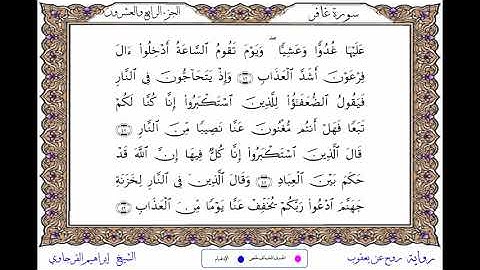 سورة غافر
الجزء الرابع والعشرون
عَلَيْهَا غُدُوًّا وَعَشِيًّا ۖ وَيَوْمَ تَقُومُ ٱلسَّاعَةُ أَدْخِلُوا۟ ءَالَ
فِرْعَوْنَ أَشَدَّ ٱلْعَذَابِ وَإِذْ يَتَحَاجُّونَ فِى ٱلنَّارِ
فَيَقُولُ ٱلضُّعَفَٰٓؤُا۟ لِلَّذِينَ ٱسْتَكْبَرُوا۟ إِنَّا كُنَّا لَكُمْ
تَبَعًا فَهَلْ أَنتُم مُّغْنُونَ عَنَّا نَصِيبًا مِّنَ ٱلنَّارِ
قَالَ ٱلَّذِينَ ٱسْتَكْبَرُوا۟ إِنَّا كُلٌّ فِيهَا إِنَّ ٱللَّهَ قَدْ
حَكَمَ بَيْنَ ٱلْعِبَادِ وَقَالَ ٱلَّذِينَ فِى ٱلنَّارِ لِخَزَنَةِ
جَهَنَّمَ ٱدْعُوا۟ رَبَّكُمْ يُخَفِّفْ عَنَّا يَوْمًا مِّنَ ٱلْعَذَابِ
رواية: روح عن يعقوب
الإدغام
الشيخ إبراهيم الفرجاوي